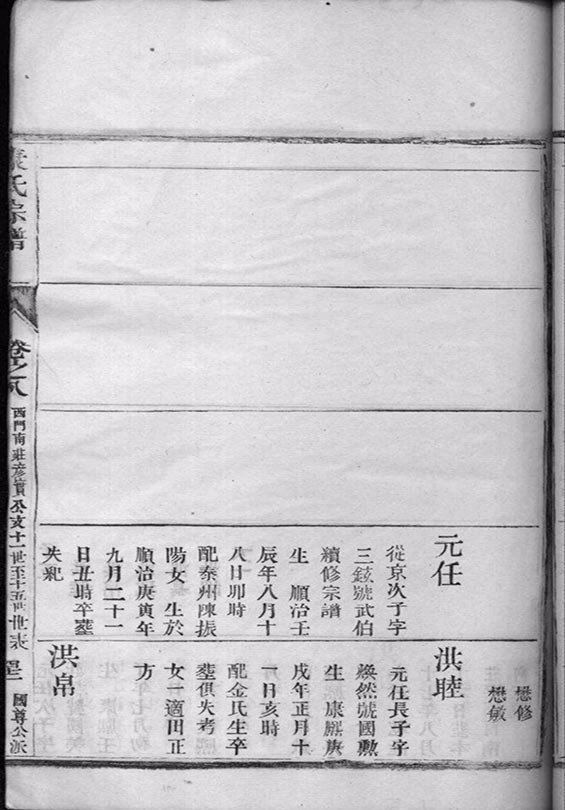 懋修
懋敏
元任
從京次子字
三鉉號武伯
續修宗譜
生　順治壬
辰年八月十
八日卯時
配泰州陳振
陽女　生於
順治庚寅年
九月二十一
日丑時卒塟
失紀
洪睦
元任長子字
煥然號國勲
生　康熈庚
戌年正月十
一日亥時
配金氏生卒
塟俱失考
女適田正
方
洪帛
氏宗譜
卷之八
西門南莊彥賓公支十一世至十五世世表
國尊公派